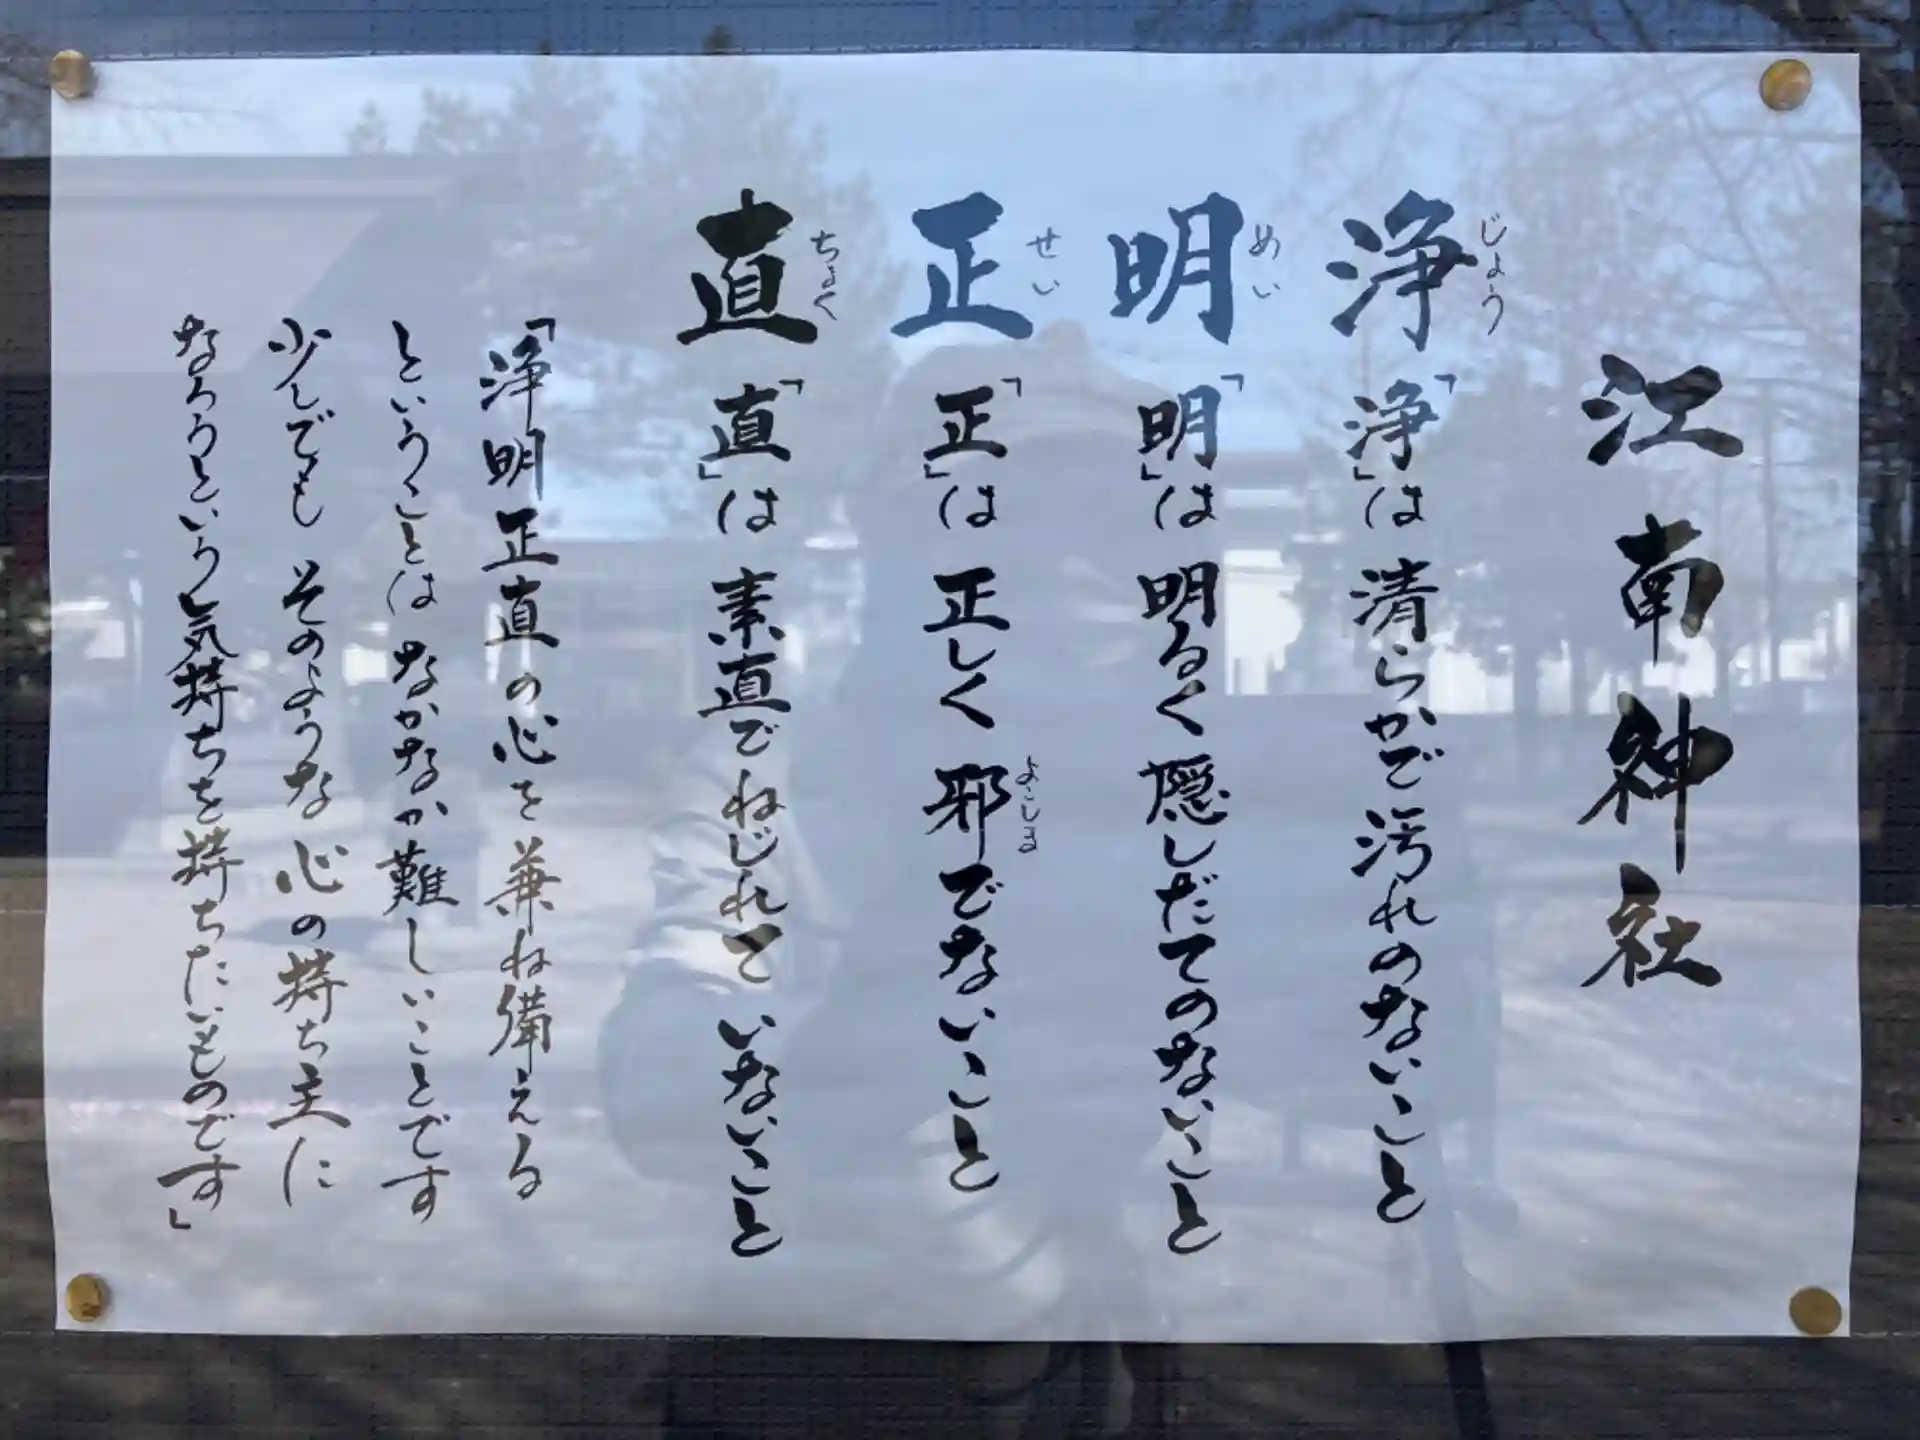 江南神社
浄 「浄」は 清らかで汚れのないこと
じょう
明 「明」は 明るく隠しだてのないこと
めい
正 「正」は 正しく邪でないこと
せい
よこしま
直 「直」は 素直でねじれていないこと
ちょく
「浄明正直の心を兼ね備える
ということは なかなか難しいことです
少しでも そのような心の持ち主に
なろうという気持ちを持ちたいものです」